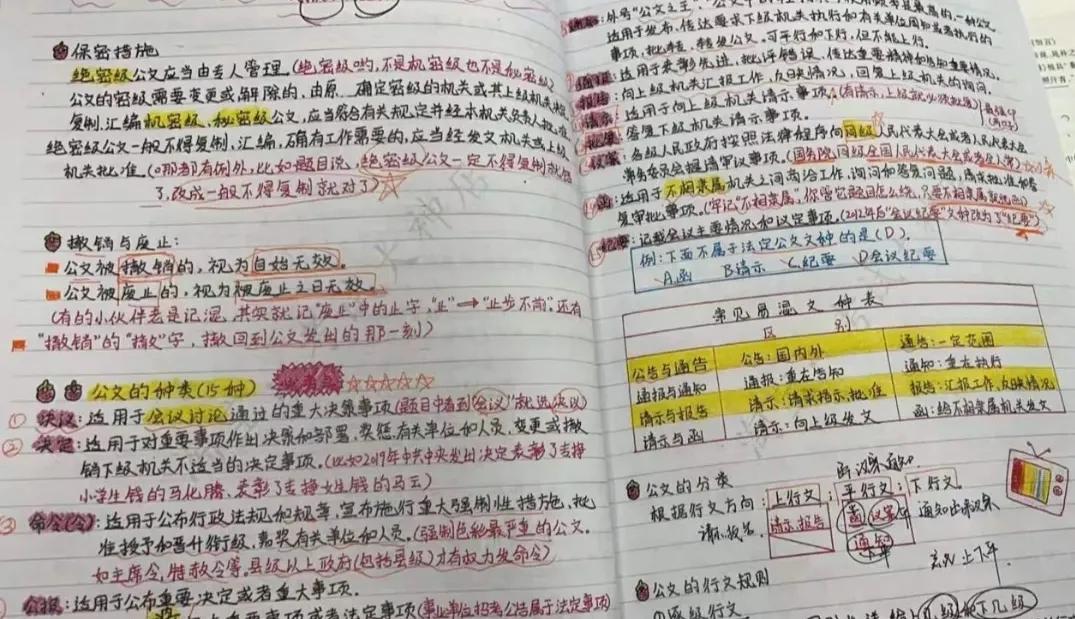 保密措施
绝密级公文应当由专人管理。(绝密级哟,不是机密级也不是秘密级)
公文的密级需要变更或解除的,由原 确定密级的机关或其上级机关决
复制、汇编机密级、秘密级公文,应当符合有关规定并经本机关负责人批准
绝密级公文一般不得复制、汇编,确有工作需要的,应当经发文机关或上级
机关批准。(哪都有例外,比如题目说,绝密级公文一定不得复制就错
了,改成一般不得复制就对了)
撤销与废止:
公文被撤销的,视为自始无效。
公文被废止的,视为被废止之日无效。
(有的小伙伴老是记混,其实就记"废止"中的止字,"止"→"止步不前"。还有
"撤销"的"撤"字,撤回到公文发出的那一刻)
公文的种类(15种) 必考点
① 决议:适用于会议讨论通过的重大决策事项(题目中看到"会议"就选决议)
② 决定:适用于对重要事项作出决策和部署、奖惩有关单位和人员、变更或撤
销下级机关不适当的决定事项。(比如2019年中共中央发出决定表彰了支持
小学生钱的马化腾、表彰了支持女生钱的马云)
③ 命令(令):适用于公布行政法规和规章、宣布施行重大强制性措施、批
准授予和晋升衔级、嘉奖有关单位和人员。(强制色彩最严重的公文。
如主席令,特赦令等。县级以上政府(包括县级)才有权力发命令)
公报:适用于公布重要决定或者重大事项。
重要事项或者法定事项(事业单位招考公告属于法定事项)
外号"公文之王"
适用于发布、传达要求下级机关执行和有关单位周知或者执行的
事项,批转、转发公文。可平行和下行,但不能上行。
通报:适用于表彰先进、批评错误、传达重要精神和告知重要情况。
报告:向上级机关汇报工作、反映情况,回复上级机关的询问。
请示:适用于向上级机关请示事项。(有请示,上级就必须批复)
批复:答复下级机关请示事项。
议案:各级人民政府按照法律程序向同级人民代表大会或者人民代表大会
常务委员会提请审议事项。(国务院同级全国人民代表大会或者全人常)
函:适用于不相隶属机关之间商洽工作、询问和答复问题、请求批准和答
复审批事项。(牢记"不相隶属",你管它题目怎么绕,只要不相隶属就选函)
纪要:记载会议主要情况和议定事项。(2012年后"会议纪要"文种改为了"纪要")
例:下面不属于法定公文文种的是(D)。
A.函 B.请示 C.纪要 D.会议纪要
常见易混文种表
区 别
公告与通告 公告:国内外 通告:一定范围
通报与通知 通报:重在告知 通知:重在执行
请示与报告 请示:请求指示、批准 报告:汇报工作、反映情况
请示与函 请示:向上级发文 函:给不相隶属机关发文
公文的分类
根据行文方向:上行文;平行文;下行文。
请示、报告 函、议案 通知
通知
公文的行文规则
①逐级行文